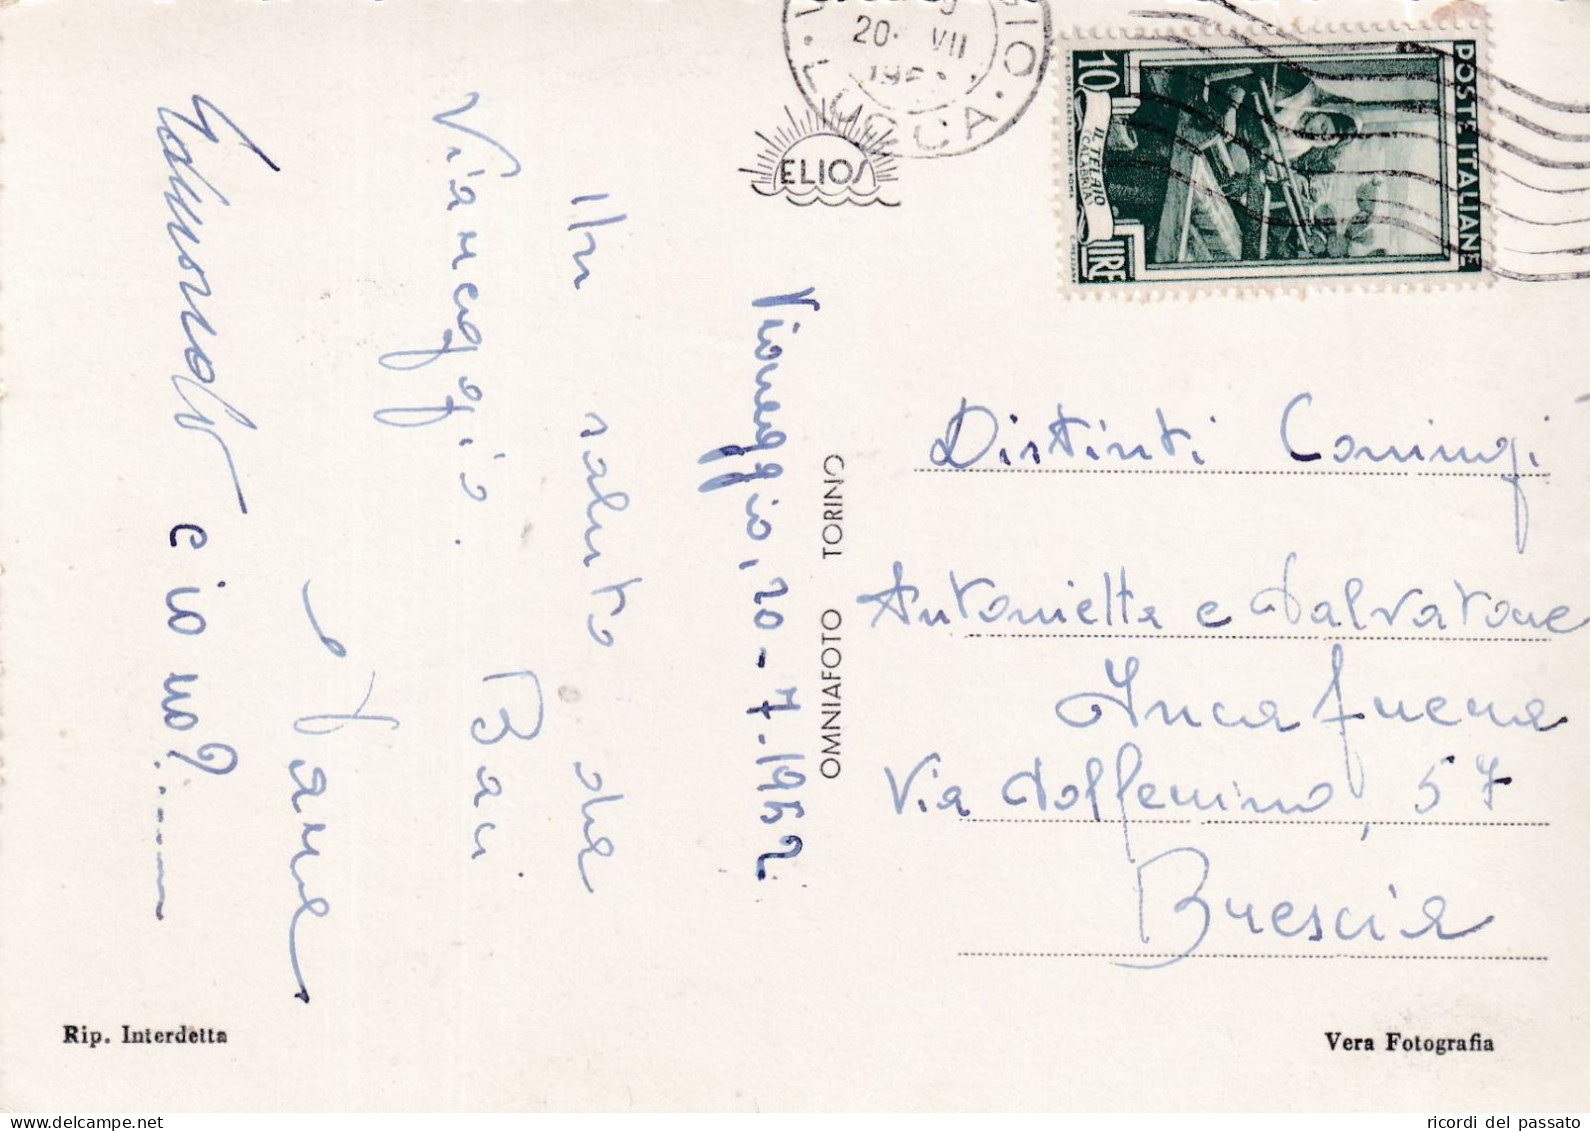 Viareggio, 20-7-1952
Un saluto da
Viareggio. Baci
e io no?
VIAREGGIO
20. VII
LUCCA
ELIOS
POSTE ITALIANE
10
LIRE
IL TELAIO
(CALABRIA)
OMNIAFOTO TORINO
Distinti Coniugi
Antonietta e Salvatore
Via Solferino, 57
Brescia
Rip. Interdetta
Vera Fotografia
ricordi del passato